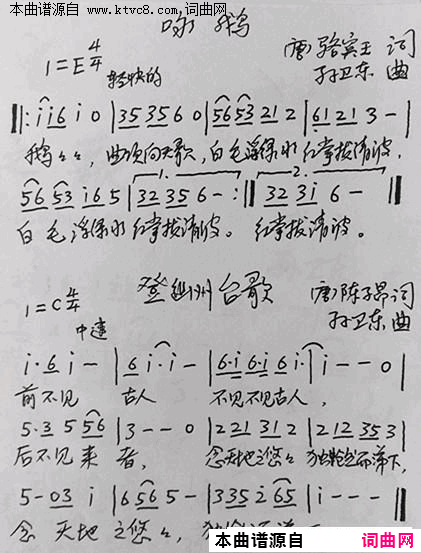 本曲谱源自
www.ktvc8.com,词曲网
咏鹅
1=E 4/4
(唐)骆宾王 词
孙卫东 曲
轻快的
‖: i i 6 i 0 | 35 35 6 0 | 56 53 21 2 | 61 21 3 - |
鹅々々, 曲项向天歌, 白毛浮绿水 红掌拨清波,
1. 2.
56 53 i6 5 | 32 35 6 - :‖ 32 3i 6 - ‖
白毛浮绿水 红掌拨清波。 红掌拨清波。
登幽州台歌
1=C 4/4
(唐)陈子昂 词
孙卫东 曲
中速
i· 6 i - | 6 i· i - | 6·i 6·i 6 i· | i - - 0 |
前不见 古人 不见不见古人,
5·3 5 56 | 3 - - 0 | 221 31 2 | 212 35 3 |
后不见来 者, 念天地之悠々 独怆然而涕下,
5 - 03 i | 6 56 5 - | 335 2 65 | i - - - ‖
念 天地 之悠々,
本曲谱源自
词曲网